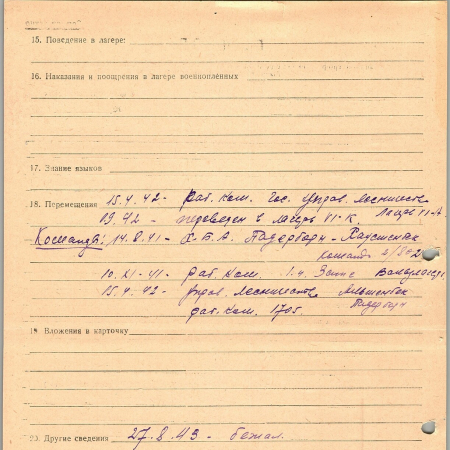 15. Поведение в лагере:
16. Наказания и поощрения в лагере военнопленных
17. Знание языков
18. Перемещения 15.4.42 - раб. ком. Гос. управ. лесничеств
Лагерь VI-А
19.42 - переведен в лагерь VI-К
Команды: 14.8.41 - Падерборн -
10.XI-41 - раб. ком.
15.4.42 - управ. лесничества Альтенбек
Падерборн
раб. ком. 1705.
19. Вложения в карточку
20. Другие сведения 27.8.43 - бежал.